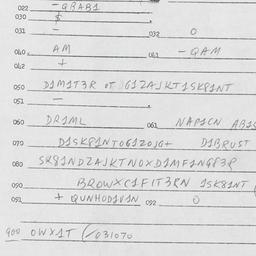 022 -QBAB1
030 $
031 - 032 0
040. AM 041 -QAM
042 +
050 D1M1T3R OT G1ZAJKT1SK81NT
051 -
060 DR1ML 061 NAP1CN AB1S
070 D1SK81NTO61ZOJG+ D1BRUST
080 SK81NDZAJKTNOXD1MF1NGP3P
090 BROWXC1F1T3RN 1SK81NT
091 + QUNHOD1V1N 092 0
900 OWX1T (/031070